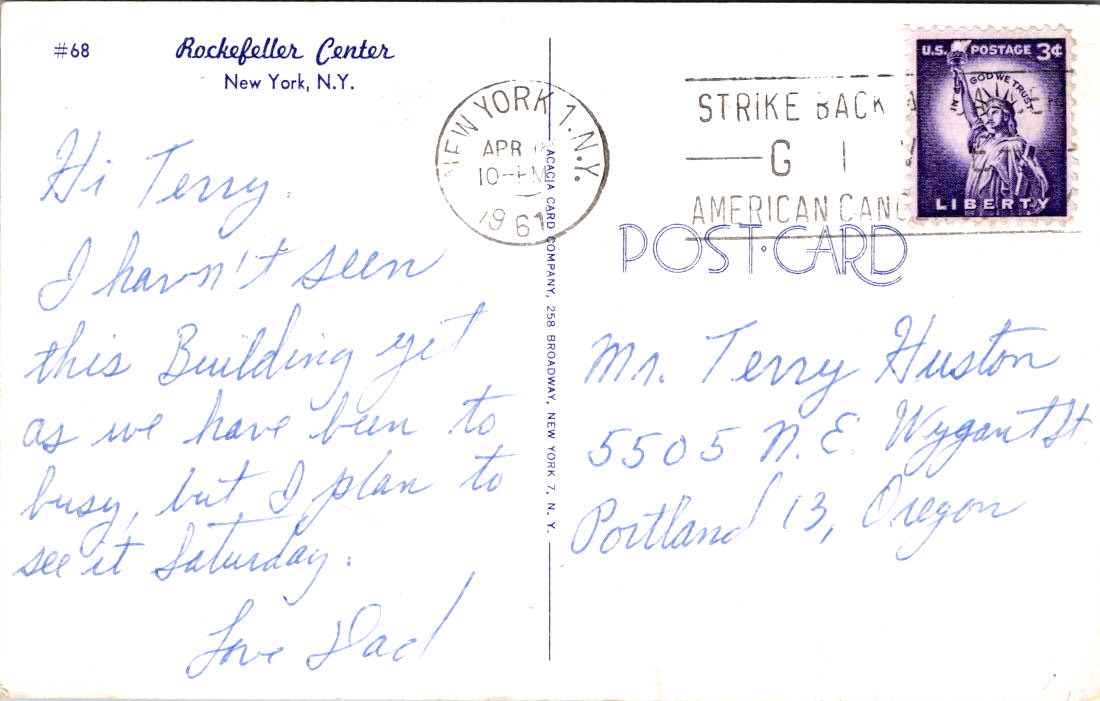 #68
Rockefeller Center
New York, N.Y.
Hi Terry.
I havn't seen
this Building yet
as we have been to
busy, but I plan to
see it Saturday.
Love Dad
NEW YORK 1, N.Y.
APR
10-PM
1961
ACACIA CARD COMPANY, 258 BROADWAY, NEW YORK 7, N. Y.
STRIKE BACK
G I
AMERICAN CANC
U.S. POSTAGE 3¢
IN GOD WE TRUST
LIBERTY
POST·CARD
Mr. Terry Huston
5505 N.E. Wygant St.
Portland 13, Oregon